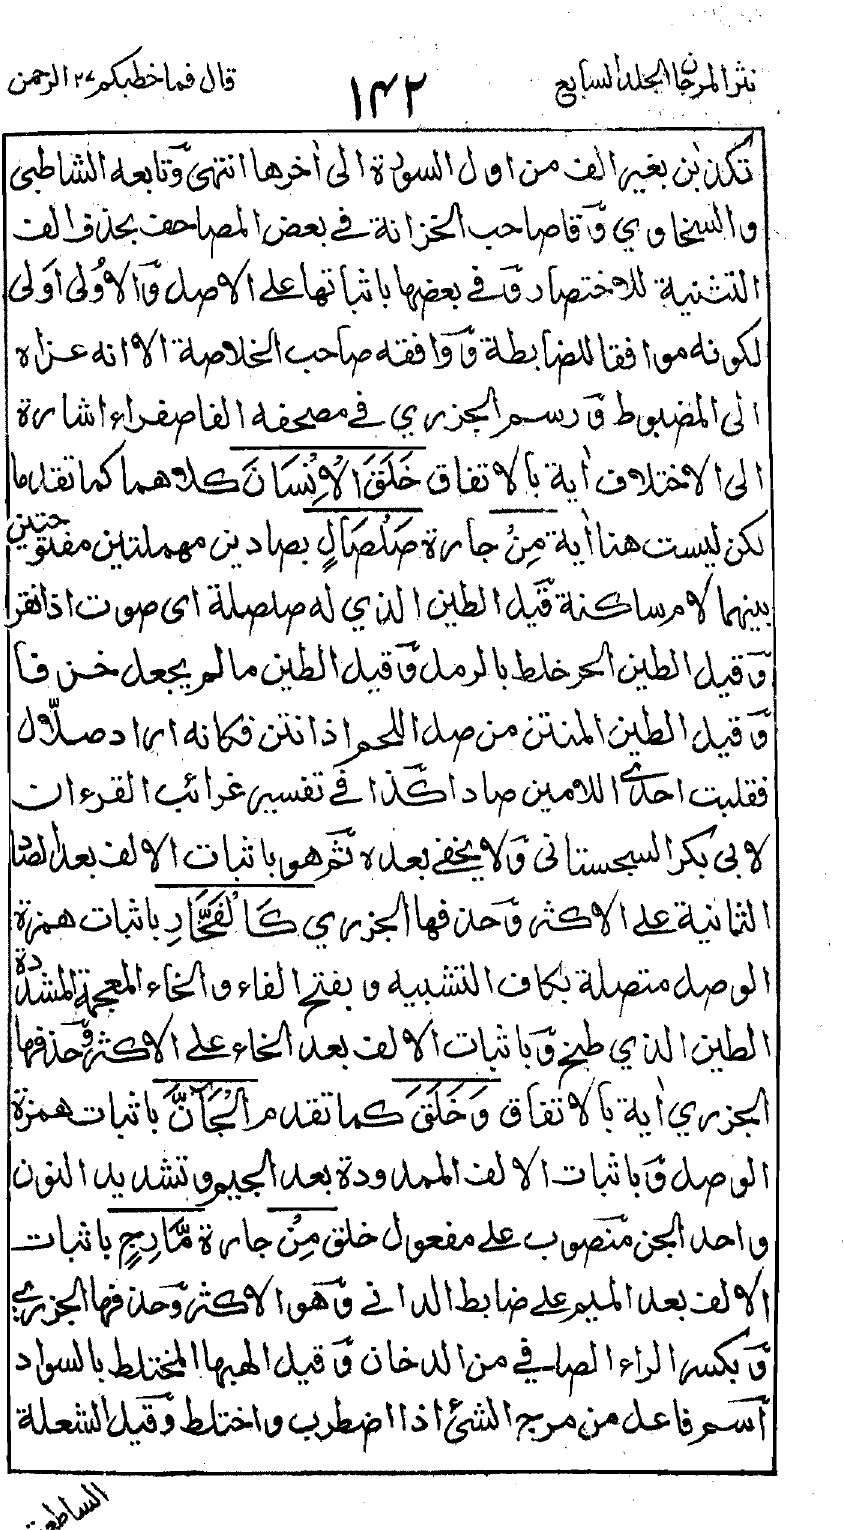 نثر المرجان المجلد السابع
١٤٢
قال فما خطبكم ٢٧ الرحمن
تُكَذِّبٰنِ بغير الف من اول السورة الى أخرها انتهى وتابعه الشاطبي
والسخاوي وقا صاحب الخزانة في بعض المصاحف بحذف الف
التثنية للاختصار وفي بعضها باثباتها على الاصل والاُولى اَولى
لكونه موافقا للضابطة ووافقه صاحب الخلاصة الا انه عزاه
الى المضبوط ورسم الجزري في مصحفه الفا صفراء اشارة
الى الاختلاف أية بالاتفاق خَلَقَ الْاِنْسَانَ كلاهما كما تقدما
لكن ليست هنا أية مِنْ جارة صَلْصَالٍ بصادين مهملتين مفتوحتين
بينهما لام ساكنة قيل الطين الذي له صلصلة اى صوت اذا نقر
وقيل الطين الحر خلط بالرمل وقيل الطين ما لم يجعل خزفا
وقيل الطين المنتن من صل اللحم اذا نتن فكانه اراد صلّال
فقلبت احدى اللامين صادا كذا في تفسير غرائب القرءان
لابى بكر السجستانى ولا يخفى بعده ثم هو باثبات الالف بعد الصاد
الثانية على الاكثر وحذفها الجزري كَالْفَخَّارِ باثبات همزة
الوصل متصلة بكاف التشبيه و بفتح الفاء والخاء المعجمة المشددة
الطين الذي طبخ وباثبات الالف بعد الخاء على الاكثر وحذفها
الجزري أية بالاتفاق وَخَلَقَ كما تقدم الْجَآنَّ باثبات همزة
الوصل وباثبات الالف الممدودة بعد الجيم وتشديد النون
واحد الجن منصوب على مفعول خلق مِنْ جارة مَّارِجٍ باثبات
الالف بعد الميم على ضابط الداني وهو الاكثر وحذفها الجزري
وبكسر الراء الصافي من الدخان وقيل الهبها المختلط بالسواد
اسم فاعل من مرج الشئ اذا اضطرب واختلط وقيل الشعلة
الساطعة